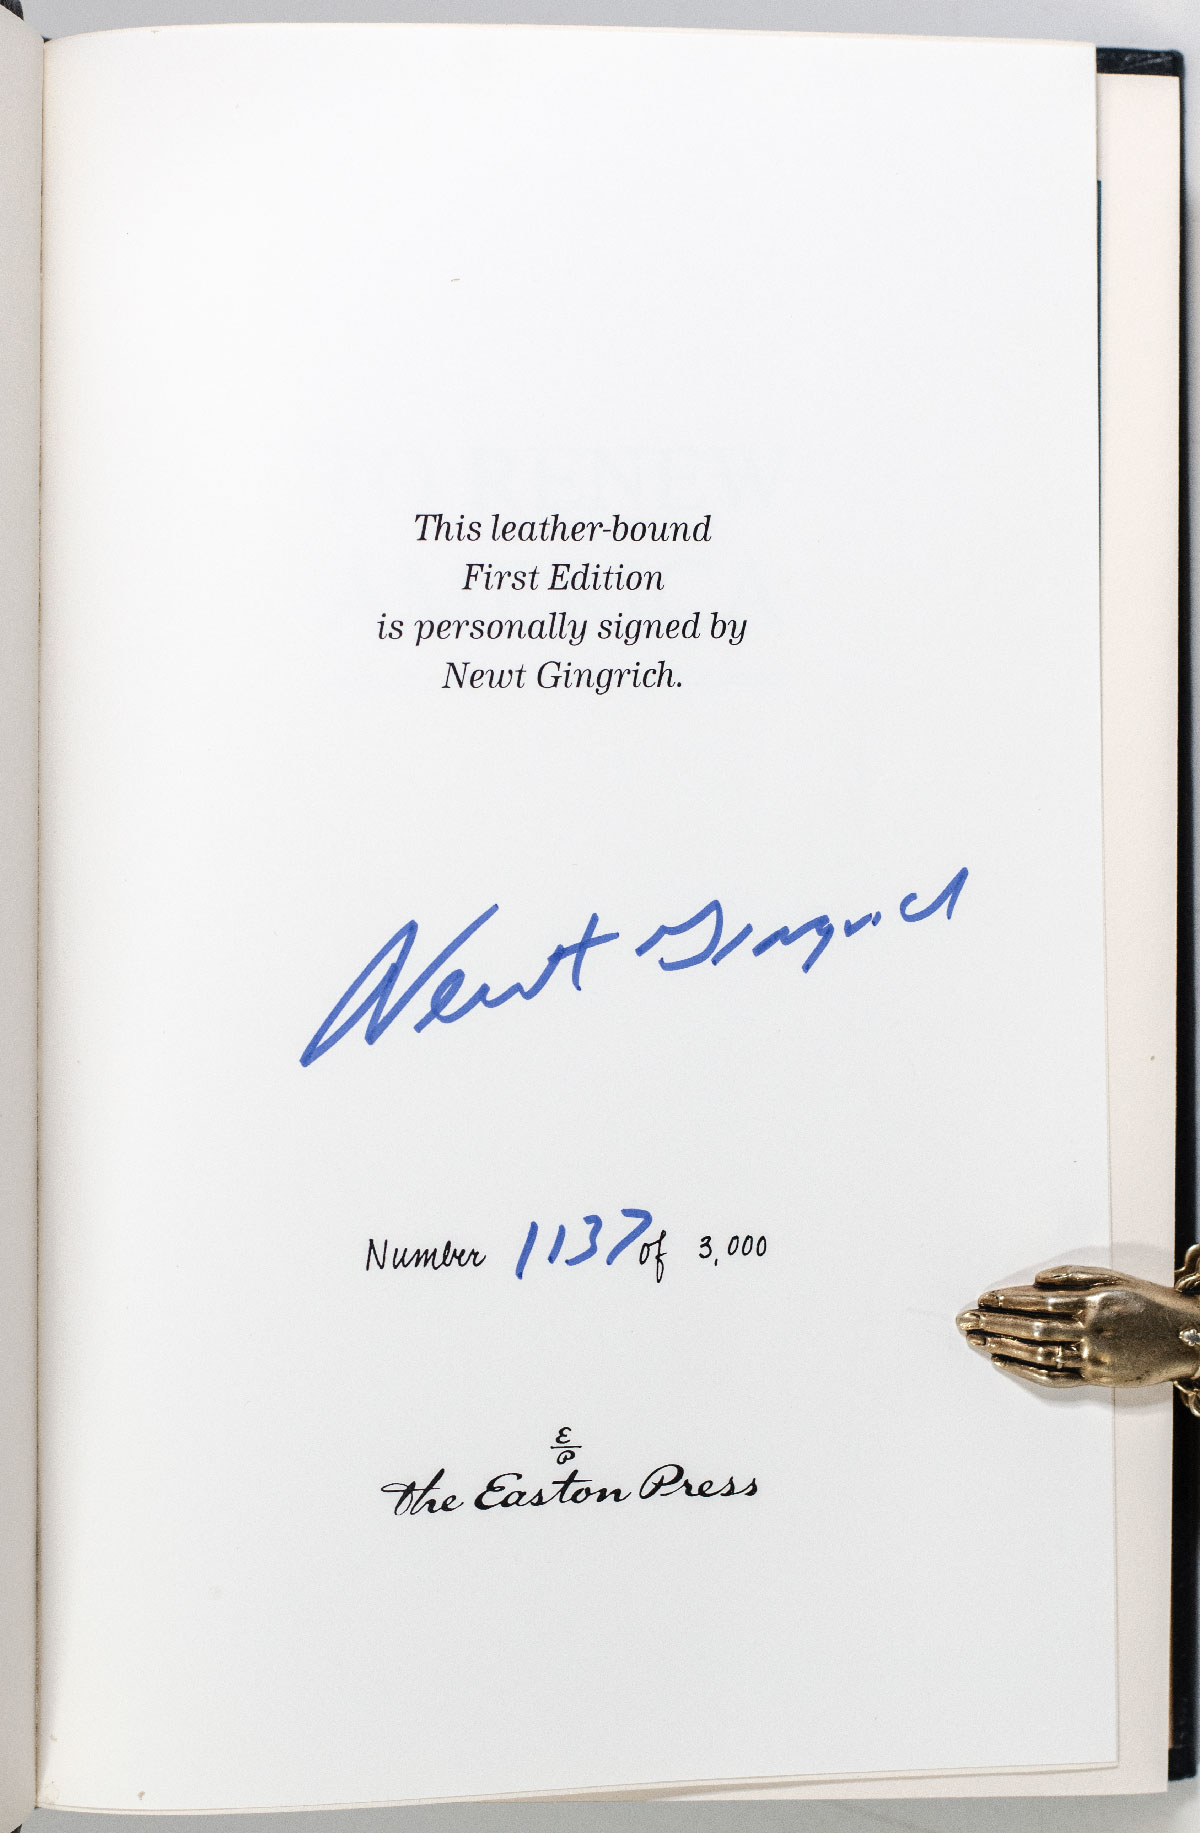 This leather-bound
First Edition
is personally signed by
Newt Gingrich.
Newt Gingrich
Number 1137 of 3,000
E
P
The Easton Press